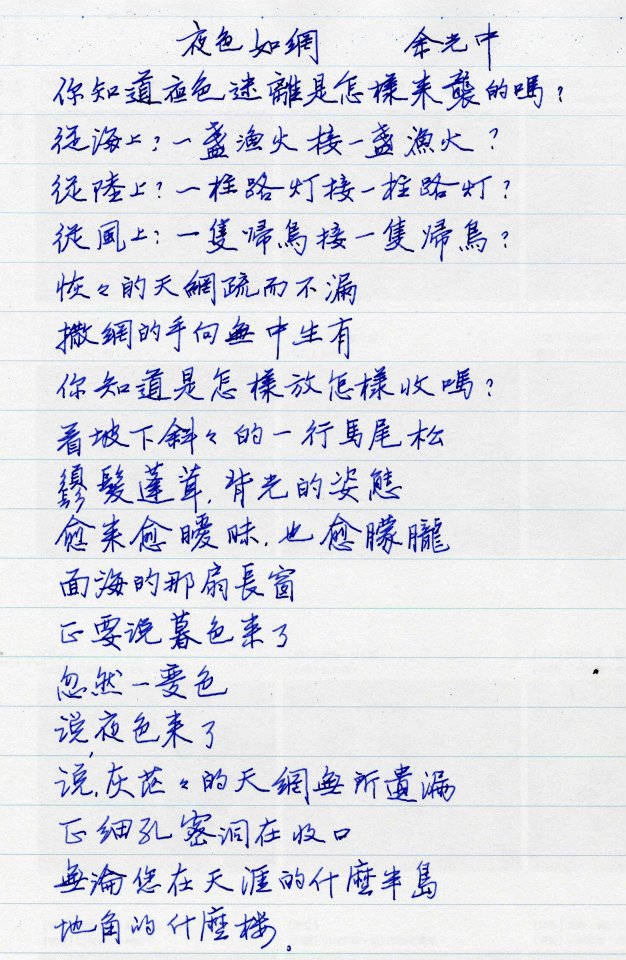 夜色如網 余光中
你知道夜色迷離是怎樣来襲的嗎?
從海上?一盞漁火接一盞漁火?
從陸上?一柱路灯接一柱路灯?
從風上?一隻帰鳥接一隻帰鳥?
恢々的天網疏而不漏
撒網的手向無中生有
你知道是怎樣放怎樣收嗎?
看坡下斜々的一行馬尾松
鬚髮蓬茸,背光的姿態
愈来愈曖昧,也愈朦朧
面海的那扇長窗
正要说暮色来了
忽然一变色
说,夜色来了
说,灰茫々的天網無所遺漏
正細孔密洞在收口
無論您在天涯的什麼半島
地角的什麼楼。